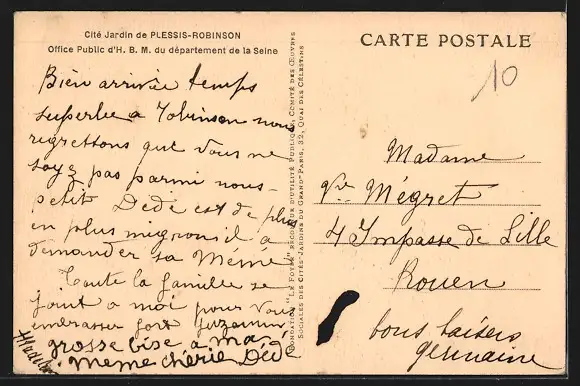 Cité Jardin de PLESSIS-ROBINSON
Office Public d'H. B. M. du département de la Seine
Bien arrivée temps
superbe a Robinson nous
regrettons que vous ne
soyez pas parmi nous
petit Dédé est de plus
en plus mignons il a
demander sa Mémé
Toute la famille se
joint a moi pour vous
embrasser fort
grosse bise a ma
meme chérie Dédé
FONDATION "LE FOYER" RECONNUE D'UTILITÉ PUBLIQUE, COMITÉ DES ŒUVRES
SOCIALES DES CITÉS-JARDINS DU GRAND-PARIS, 32, QUAI DES CÉLESTINS
CARTE POSTALE
10
Madame
Vve Mégret
4 Impasse de Lille
Rouen
bons baisers
germaine